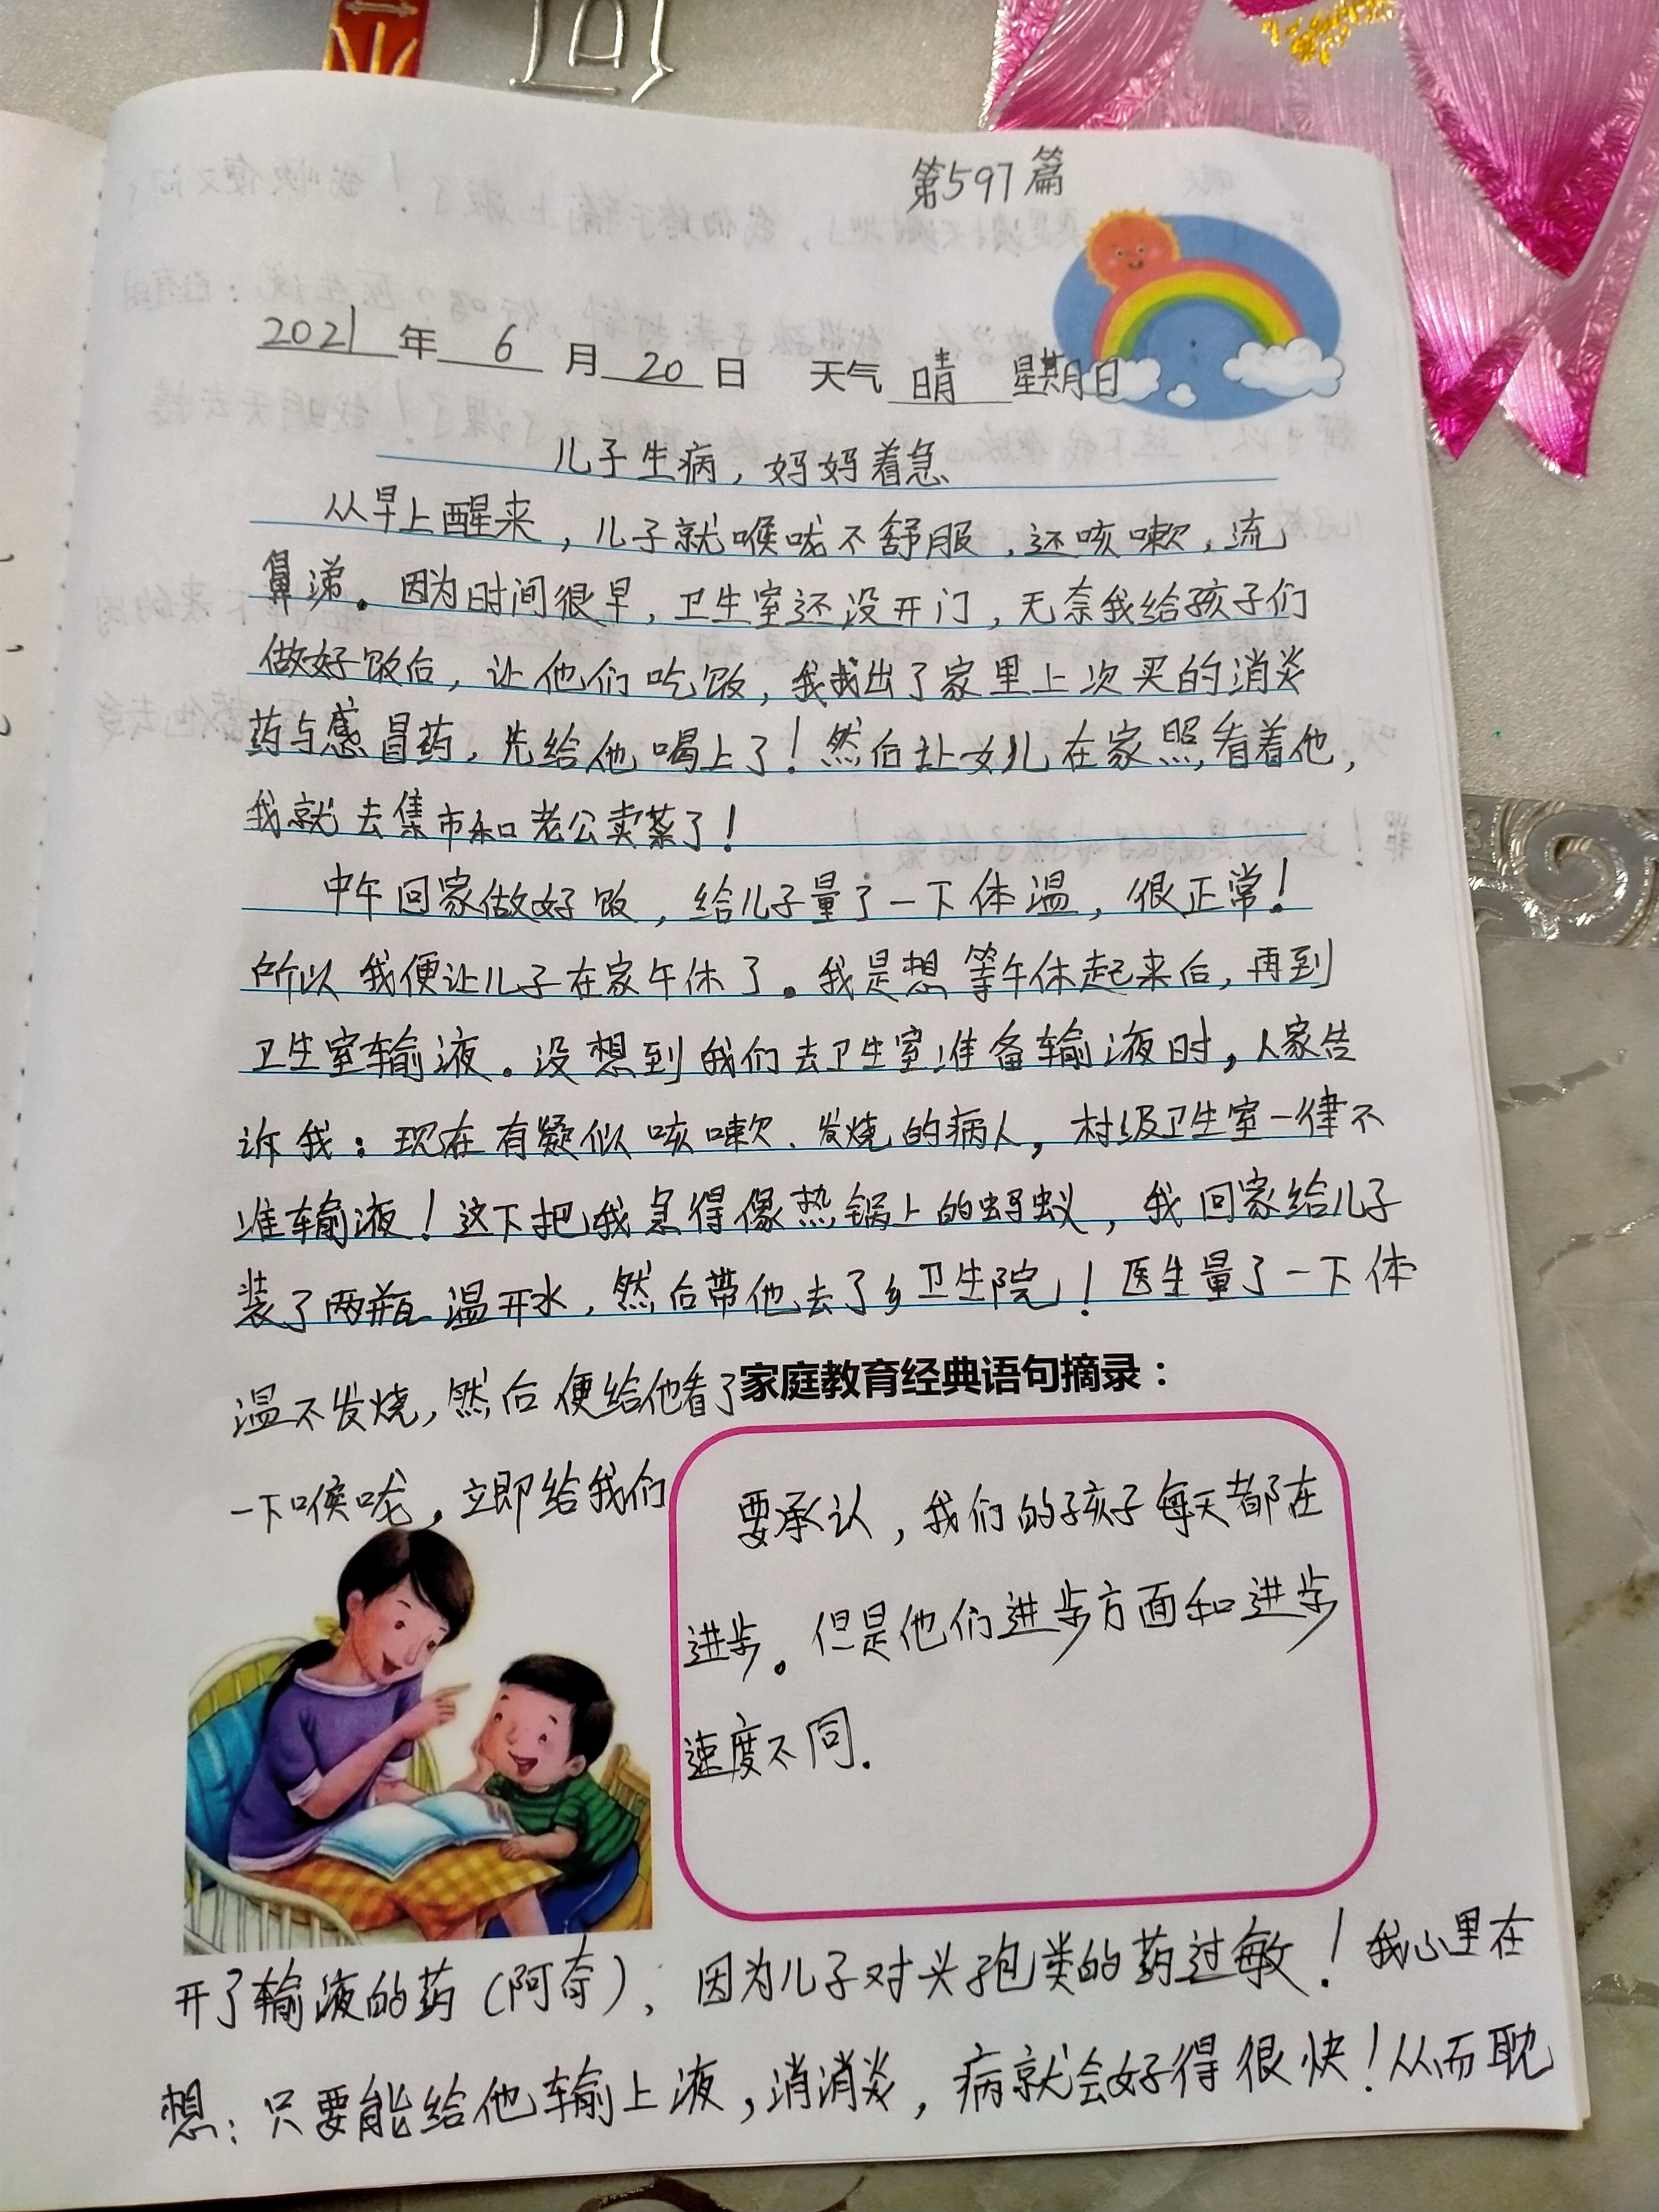 第597篇
2021年6月20日 天气 晴 星期日
儿子生病，妈妈着急
从早上醒来，儿子就喉咙不舒服，还咳嗽，流
鼻涕。因为时间很早，卫生室还没开门，无奈我给孩子们
做好饭后，让他们吃饭，我找出了家里上次买的消炎
药与感冒药，先给他喝上了！然后让女儿在家照看着他，
我就去集市和老公卖菜了！
中午回家做好饭，给儿子量了一下体温，很正常！
所以我便让儿子在家午休了。我是想等午休起来后，再到
卫生室输液。没想到我们去卫生室准备输液时，人家告
诉我：现在有疑似咳嗽、发烧的病人，村级卫生室一律不
准输液！这下把我急得像热锅上的蚂蚁，我回家给儿子
装了两瓶温开水，然后带他去了乡卫生院！医生量了一下体
温不发烧，然后便给他看了
一下喉咙，立即给我们
家庭教育经典语句摘录：
要承认，我们的孩子每天都在
进步。但是他们进步方面和进步
速度不同.
开了输液的药（阿奇），因为儿子对头孢类的药过敏！我心里在
想：只要能给他输上液，消消炎，病就会好得很快！从而耽